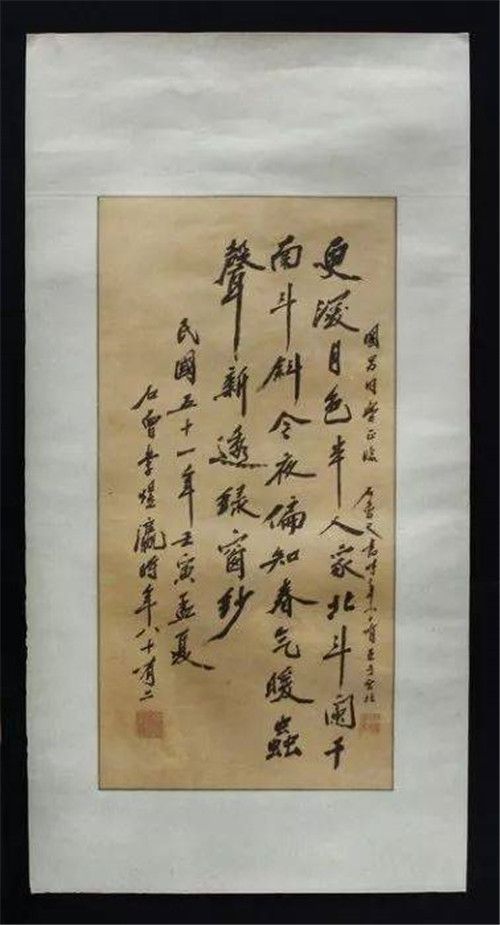 國昌同學正 石曾又書時年八十有
更深月色半人家北斗闌干
南斗斜今夜偏知春氣暖蟲
聲新透綠窗紗
民國五十一年壬寅孟夏
石曾李煜瀛時年八十有二